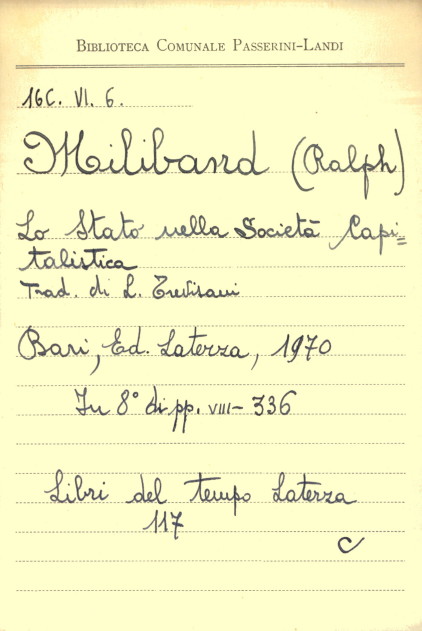 BIBLIOTECA COMUNALE PASSERINI-LANDI
16C. VI. 6.
Miliband (Ralph)
Lo Stato nella Società Capi=
talistica
Trad. di L. Trevisani
Bari, Ed. Laterza, 1970
In 8° di pp. VIII - 336
Libri del tempo Laterza
117
C